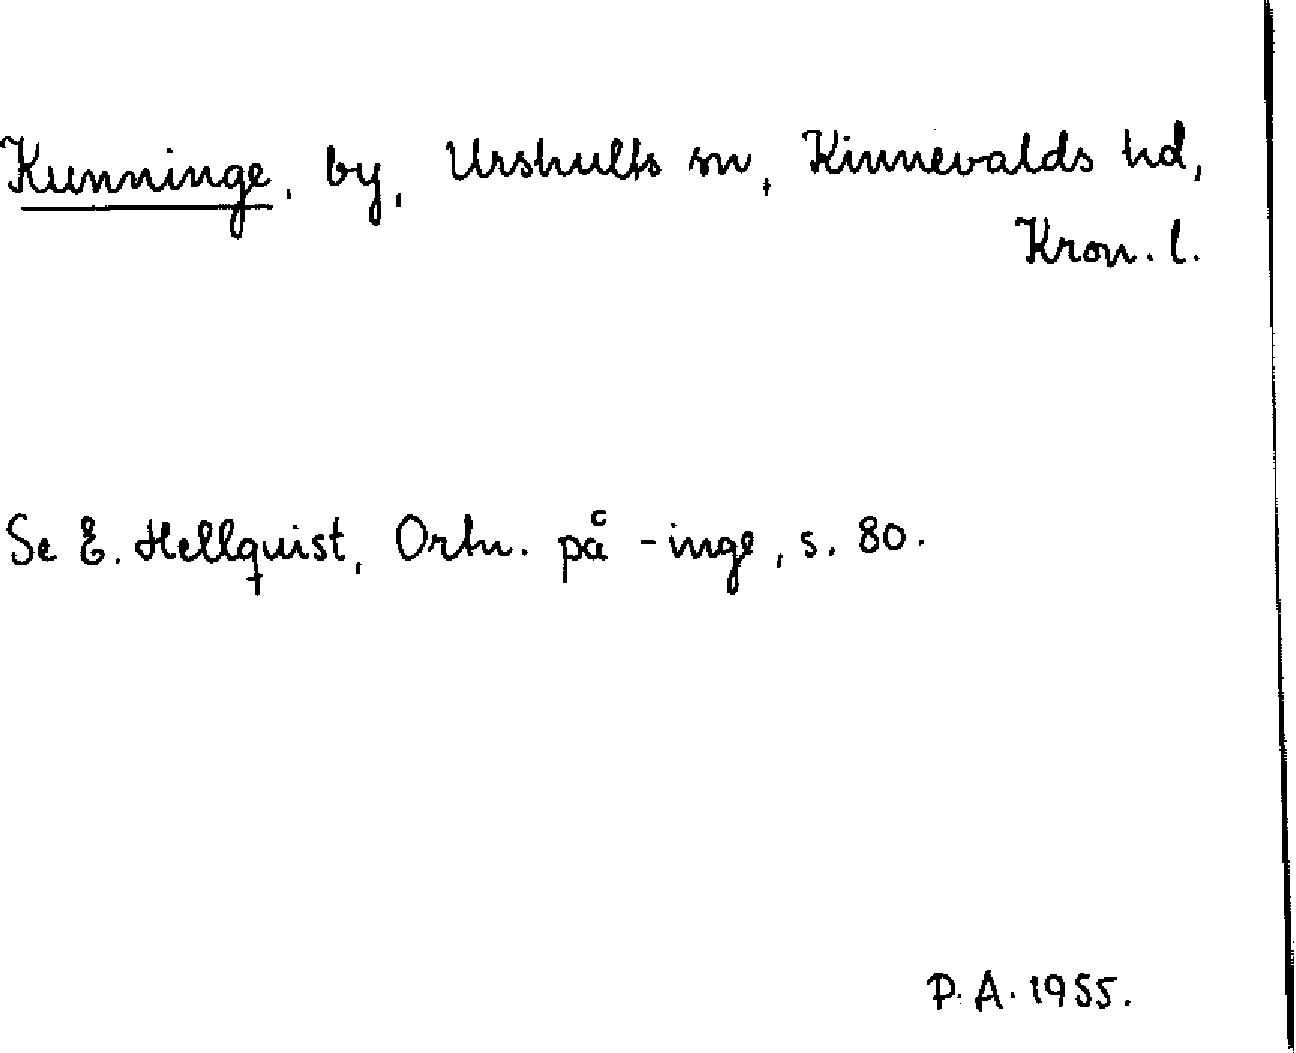 Kunninge, by, Urshults sn, Kinnevalds hd,
Kron. l.
Se E. Hellquist, Ortn. på -inge, s. 80.
P. A. 1955.